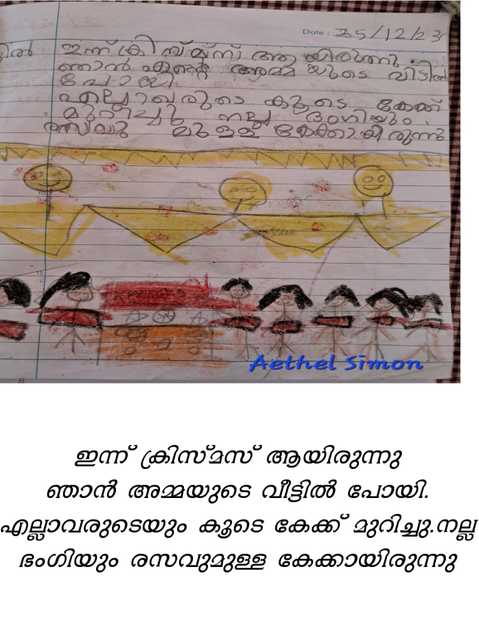 Date : 25/12/23
ഇന്ന് ക്രിസ്മസ് ആയിരുന്നു
ഞാൻ എന്റെ അമ്മയുടെ വീട്ടിൽ
പോയി
എല്ലാവരുടെ കൂടെ കേക്ക്
മുറിച്ചു നല്ല ഭംഗിയും
രസവു മുള്ള കേക്കായി രുന്നു
Aethel Simon
ഇന്ന് ക്രിസ്മസ് ആയിരുന്നു
ഞാൻ അമ്മയുടെ വീട്ടിൽ പോയി.
എല്ലാവരുടെയും കൂടെ കേക്ക് മുറിച്ചു.നല്ല
ഭംഗിയും രസവുമുള്ള കേക്കായിരുന്നു